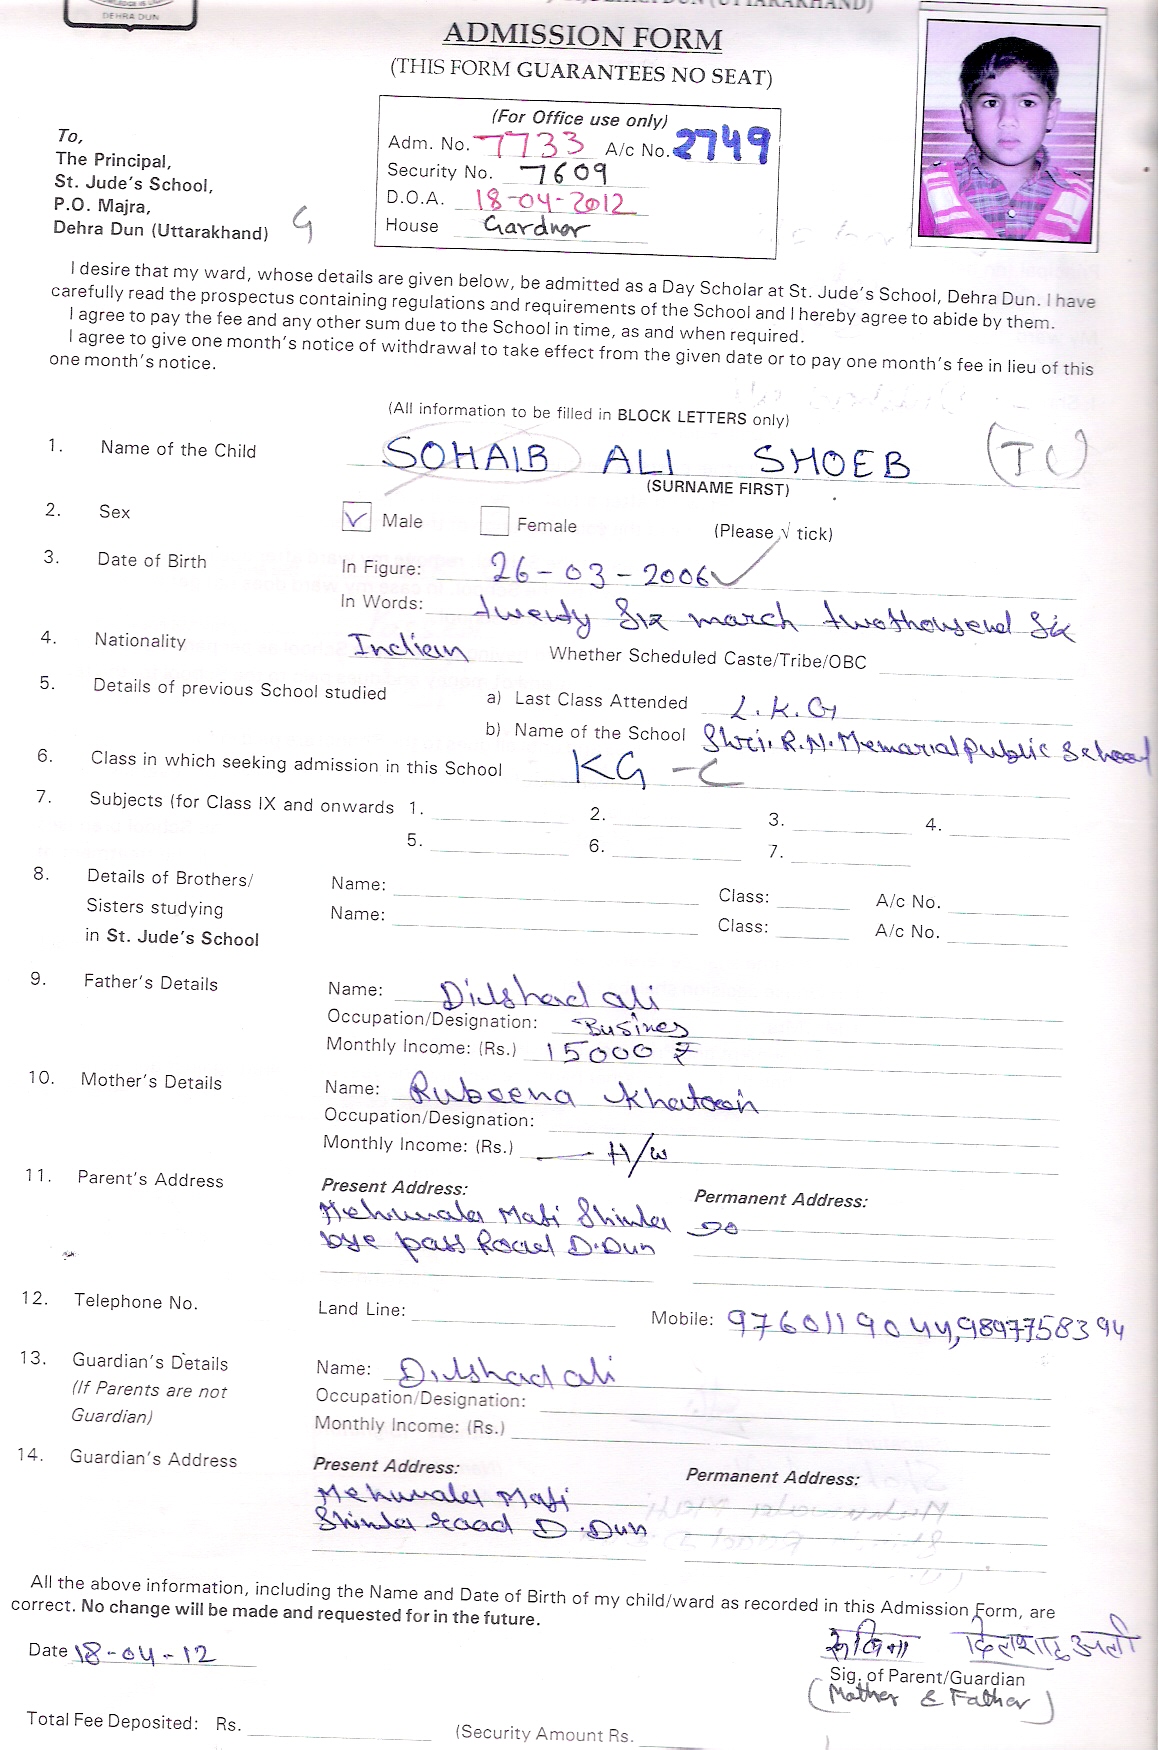 DEHRA DUN
ADMISSION FORM
(THIS FORM GUARANTEES NO SEAT)
(For Office use only)
Adm. No. 7733 A/c No. 2749
Security No. 7609
D.O.A. 18-04-2012
House Gardner
To,
The Principal,
St. Jude's School,
P.O. Majra,
Dehra Dun (Uttarakhand) G
I desire that my ward, whose details are given below, be admitted as a Day Scholar at St. Jude's School, Dehra Dun. I have
carefully read the prospectus containing regulations and requirements of the School and I hereby agree to abide by them.
I agree to pay the fee and any other sum due to the School in time, as and when required.
I agree to give one month's notice of withdrawal to take effect from the given date or to pay one month's fee in lieu of this
one month's notice.
(All information to be filled in BLOCK LETTERS only)
1. Name of the Child SOHAIB ALI SHOEB (TC)
(SURNAME FIRST)
2. Sex Male Female (Please √ tick)
3. Date of Birth In Figure: 26-03-2006
In Words: twenty Six march twothousend Six
4. Nationality Indian Whether Scheduled Caste/Tribe/OBC
5. Details of previous School studied a) Last Class Attended L.K.G
b) Name of the School Shri. R.N. Memarial Public School
6. Class in which seeking admission in this School KG -C
7. Subjects (for Class IX and onwards 1. 2. 3. 4.
5. 6. 7.
8. Details of Brothers/ Name: Class: A/c No.
Sisters studying Name: Class: A/c No.
in St. Jude's School
9. Father's Details Name: Dilshad ali
Occupation/Designation: Busines
Monthly Income: (Rs.) 15000 ₹
10. Mother's Details Name: Rubeena Khatoon
Occupation/Designation:
Monthly Income: (Rs.) — H/w
11. Parent's Address Present Address: Permanent Address:
Mehuwala Mafi Shimla Do
bye pass Road D.Dun
12. Telephone No. Land Line: Mobile: 9760119044, 9897758394
13. Guardian's Details Name: Dilshad ali
(If Parents are not Occupation/Designation:
Guardian) Monthly Income: (Rs.)
14. Guardian's Address Present Address: Permanent Address:
Mehuwala Mafi
Shimla road D.Dun
All the above information, including the Name and Date of Birth of my child/ward as recorded in this Admission Form, are
correct. No change will be made and requested for in the future.
Date 18-04-12 रुबिना दिलशाद अली
Sig. of Parent/Guardian
(Mather & Father)
Total Fee Deposited: Rs. (Security Amount Rs.